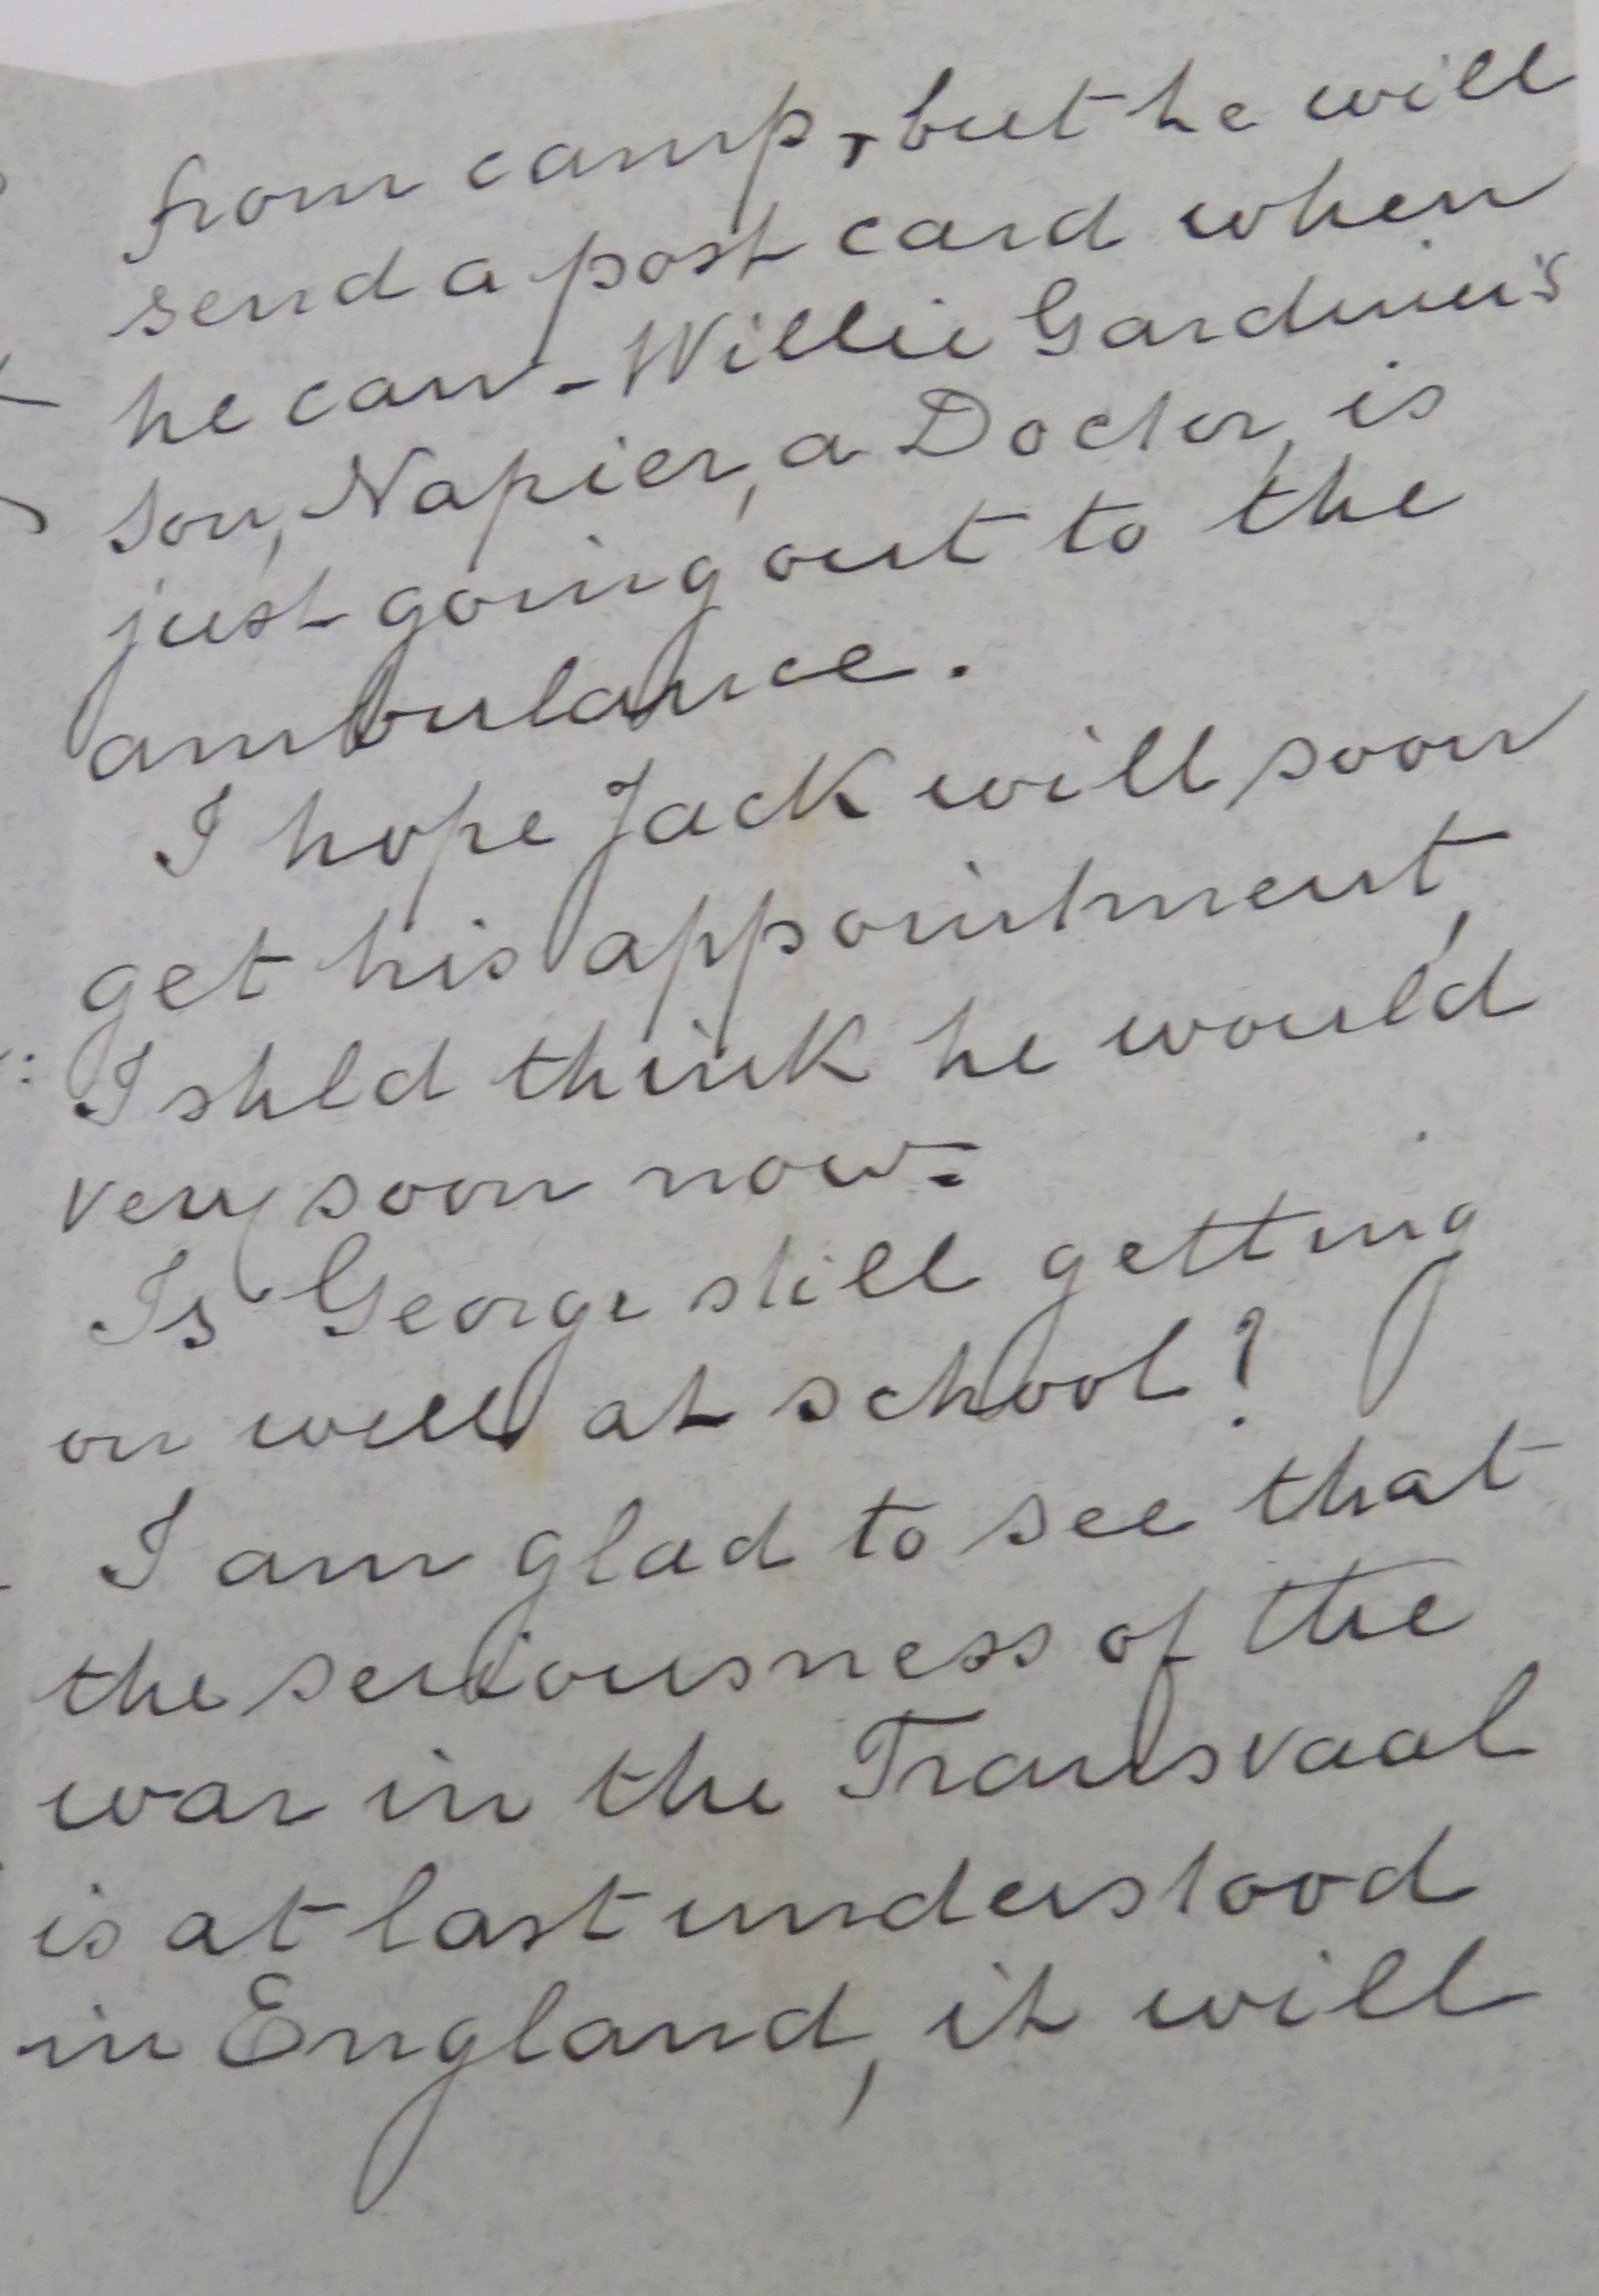 from camp, but he will
send a post card when
he can - Willie Gardiner's
son, Napier, a Doctor, is
just going out to the
ambulance.
I hope Jack will soon
get his appointment,
I shld think he would
very soon now -
Is George still getting
on well at school?
I am glad to see that
the seriousness of the
war in the Transvaal
is at last understood
in England, it will